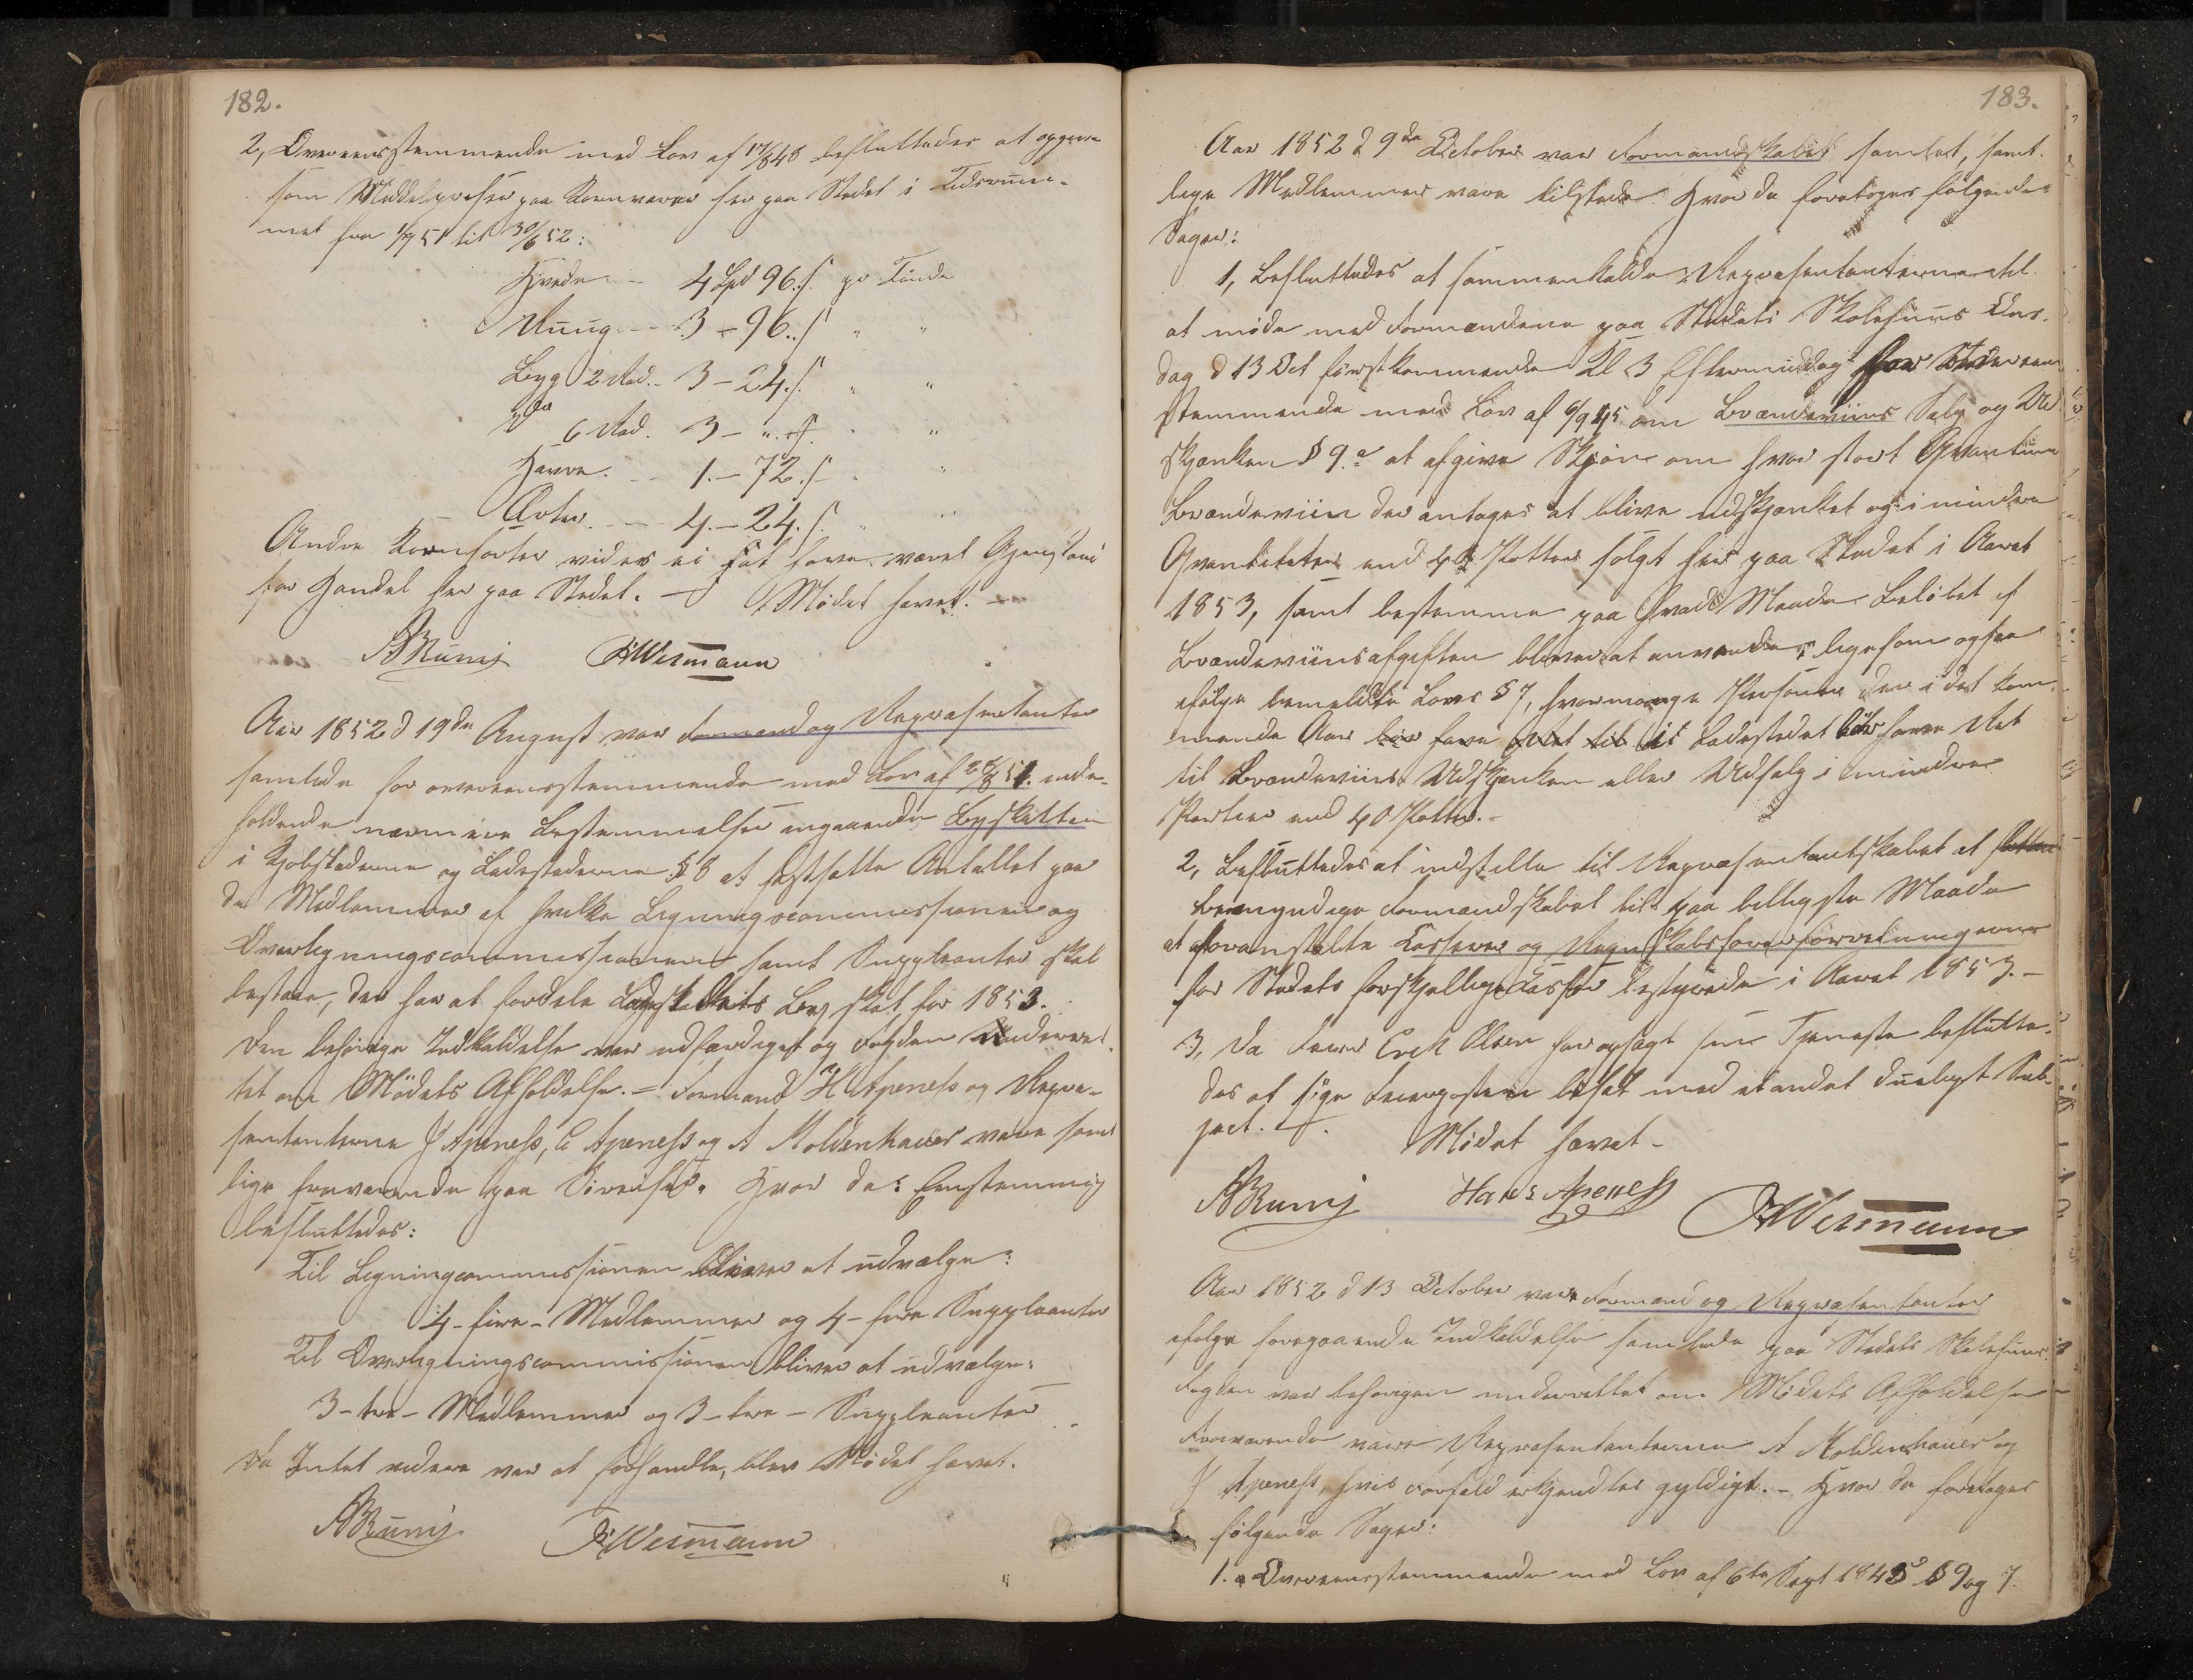 182.
2, Overeensstemmende med Lov af 17/8 48 besluttedes at opgive
som Middelpriser paa Kornvarer her paa Stedet i Tidsrum-
met fra 1/7 51 til 30/6 52:
Hvede - 4 Spd 96 s. pr Tønde
Ruug - 3 - 96 s. " "
Byg 2 Rad. - 3 - 24 s. " "
do 6 Rad. 3 - " s. " "
Havre - 1 - 72 s. " "
Erter - 4 - 24 s. " "
Andre Kornsorter vides ei at have været Gjenstand
for Handel her paa Stedet. - Mødet hævet. -
A Runj FWesmann
Aar 1852 d 19de August var Formænd og Repræsentanter
samlede for overeensstemmende med Lov af 26/8 51 inde-
holdende nærmere Bestemmelser angaaende Byskatten
i Kjøbstæderne og Ladestæderne § 8 at fastsætte Antallet paa
de Medlemmer af hvilke Ligningscommissionen og
Overligningscommissionen samt Suppleanter skal
bestaae, der har at fordele Ladestedets Byskat for 1853.
Den behørige Indkaldelse var udfærdiget og Fogden underret-
tet om Mødets Afholdelse. - Formand H Apeness og Repræ-
sentanterne J Apeness, C Apeness og A Moldenhauer vare samt-
lige fraværende paa Reiser. Hvor da: Eenstemmig
besluttedes:
Til Ligningcommissionen bliver at udvælge:
4 - fire - Medlemmer og 4 - fire Suppleanter
Til Overligningscommissionen bliver at udvælge:
3 - tre - Medlemmer og 3 - tre - Suppleanter
Da Intet videre var at forhandle, blev Mødet hævet.
A Runj FWesmann
183.
Aar 1852 d 9de October var Formandskabet samlet, samt-
lige Medlemmer vare tilstede. Hvor da foretoges følgende
Sager:
1, Besluttedes at sammenkalde Repræsentanterne til
at møde med Formændene paa Stedets Skolehuus Ons-
dag d 13 Oct førstkommende Kl 3 Eftermiddag for Overeens-
stemmende med Lov af 6/9 45 om Brændeviins Salg og Ud-
skjænken § 9 at afgive Skjøn om hvor stort Qvantum
Brændeviin der antages at blive udskjænket og i mindre
Qvantiteter end 40 Potter solgt her paa Stedet i Aaret
1853, samt bestemme paa hvad Maade Beløbet af
Brændeviinsafgiften bliver at anvende, ligesom ogsaa
ifølge bemeldte Lovs § 7, hvormange Personer der i det kom-
mende Aar bør have Ret til i Ladestedet bør have Ret
til Brændeviins Udskjænken eller Udsalg i mindre
Partier end 40 Potter. -
2, Besluttedes at indstille til Repræsentantskabet at
bemyndige Formandskabet til paa billigste Maade
at foranstalte Kasserer og Regnskabsførerforretningerne
for Stedets forskjellige Kasser bestyrede i Aaret 1853. -
3, Da Feier Erik Olsen har opsagt sin Tjeneste beslutte-
des at søge Feierposten besat med et andet dueligt Sub-
ject. - Mødet hævet -
A Runj Hans Apeness FWesmann
Aar 1852 d 13 October vare Formænd og Repræsentanter
ifølge foregaaende Indkaldelse samlede paa Stedets Skolehuus.
Fogden var behørigen underrettet om Mødets Afholdelse
Fraværende vare Repræsentanterne A Moldenhauer og
J Apeness, hvis Forfald erkjendtes gyldigt. - Hvor da foretoges
følgende Sager:
1. a Overeensstemmende med Lov af 6te Sept 1845 § 9 og 7.